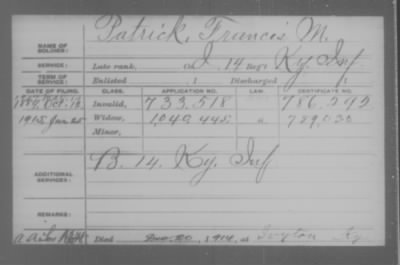 Patrick, Francis M.
NAME OF SOLDIER:
SERVICE: Late rank, Co. I, 14 Reg't Ky Inf
TERM OF SERVICE: Enlisted , 1 Discharged , 1
DATE OF FILING. CLASS. APPLICATION NO. LAW. CERTIFICATE NO.
1889, Oct. 16 Invalid, 733,518 786,292
1915 Jan 25 Widow, 1,040,445 789,030
Minor,
ADDITIONAL SERVICES: B. 14. Ky. Inf
REMARKS:
Died Dec. 20, 1914, at Ivyton Ky.